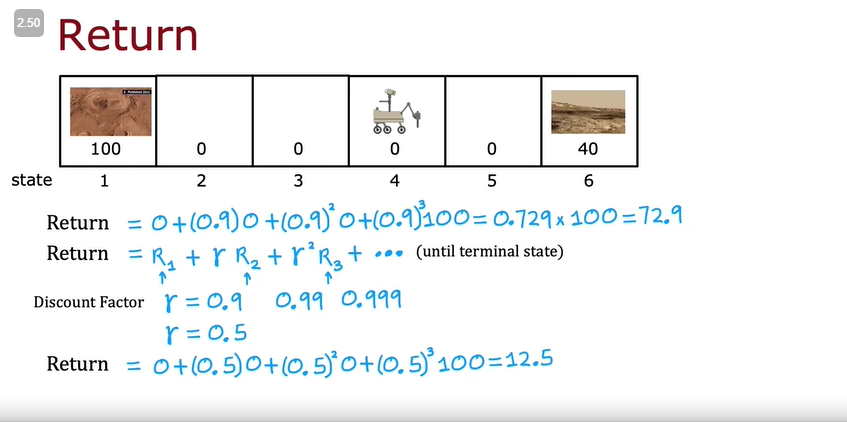 2.50
Return
100 0 0 0 0 40
state 1 2 3 4 5 6
Return = 0+(0.9)0+(0.9)²0+(0.9)³100=0.729×100=72.9
Return = R₁ + γ R₂ + γ² R₃ + ... (until terminal state)
Discount Factor γ = 0.9 0.99 0.999
γ = 0.5
Return = 0+(0.5)0+(0.5)²0+(0.5)³100=12.5